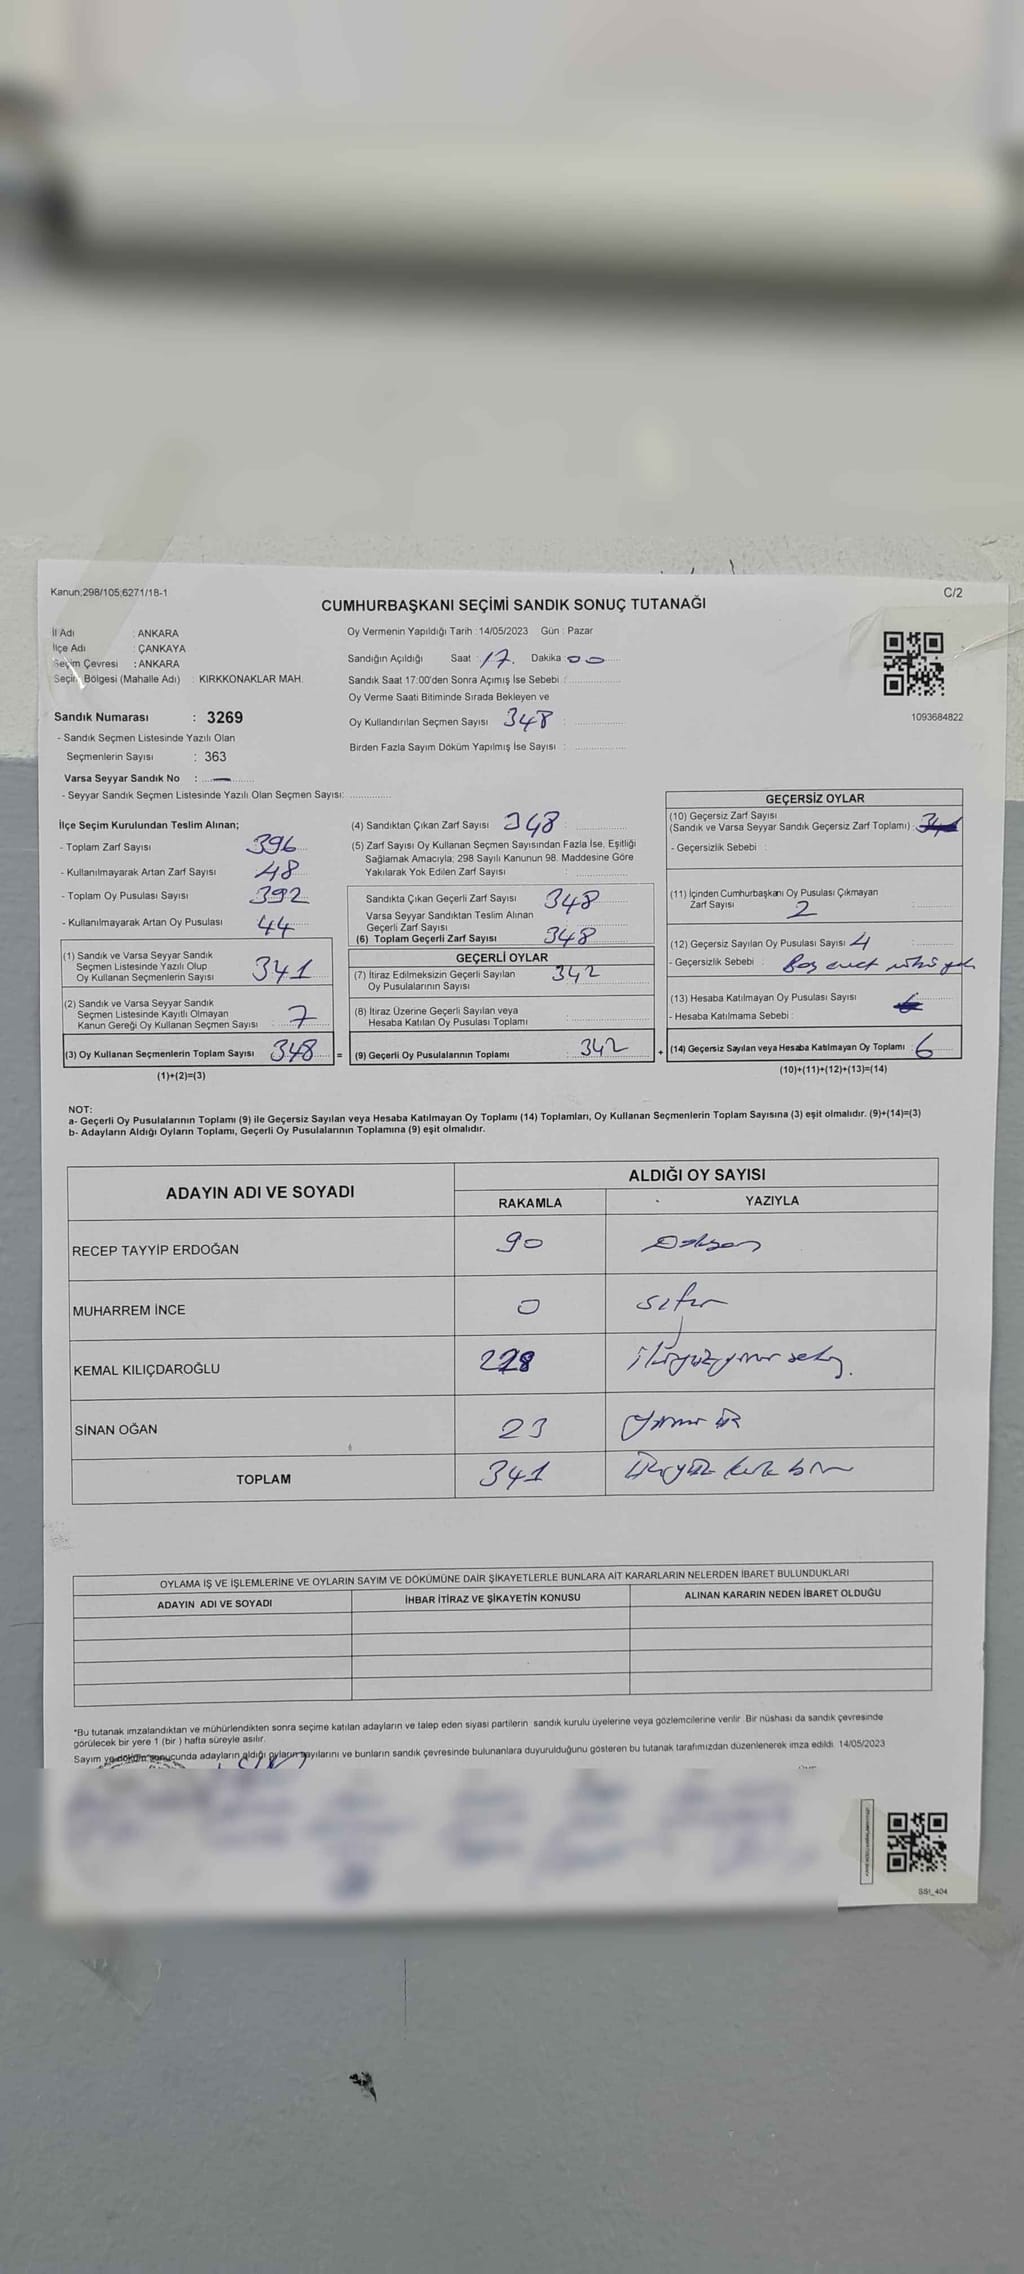 Kanun;298/105;6271/18-1
C/2
CUMHURBAŞKANI SEÇİMİ SANDIK SONUÇ TUTANAĞI
İl Adı : ANKARA
İlçe Adı : ÇANKAYA
Seçim Çevresi : ANKARA
Seçim Bölgesi (Mahalle Adı) : KIRKKONAKLAR MAH.
Sandık Numarası : 3269
- Sandık Seçmen Listesinde Yazılı Olan
Seçmenlerin Sayısı : 363
Varsa Seyyar Sandık No : —
- Seyyar Sandık Seçmen Listesinde Yazılı Olan Seçmen Sayısı:
Oy Vermenin Yapıldığı Tarih : 14/05/2023 Gün : Pazar
Sandığın Açıldığı Saat : 17. Dakika 00
Sandık Saat 17:00'den Sonra Açımış İse Sebebi :
Oy Verme Saati Bitiminde Sırada Bekleyen ve
Oy Kullandırılan Seçmen Sayısı 348 :
Birden Fazla Sayım Döküm Yapılmış İse Sayısı :
1093684822
İlçe Seçim Kurulundan Teslim Alınan;
- Toplam Zarf Sayısı 396
- Kullanılmayarak Artan Zarf Sayısı 48
- Toplam Oy Pusulası Sayısı 392
- Kullanılmayarak Artan Oy Pusulası 44
(1) Sandık ve Varsa Seyyar Sandık
Seçmen Listesinde Yazılı Olup
Oy Kullanan Seçmenlerin Sayısı 341
(2) Sandık ve Varsa Seyyar Sandık
Seçmen Listesinde Kayıtlı Olmayan
Kanun Gereği Oy Kullanan Seçmen Sayısı 7
(3) Oy Kullanan Seçmenlerin Toplam Sayısı 348 =
(1)+(2)=(3)
(4) Sandıktan Çıkan Zarf Sayısı 348 :
(5) Zarf Sayısı Oy Kullanan Seçmen Sayısından Fazla İse, Eşitliği
Sağlamak Amacıyla; 298 Sayılı Kanunun 98. Maddesine Göre
Yakılarak Yok Edilen Zarf Sayısı :
Sandıkta Çıkan Geçerli Zarf Sayısı 348
Varsa Seyyar Sandıktan Teslim Alınan
Geçerli Zarf Sayısı
(6) Toplam Geçerli Zarf Sayısı 348
GEÇERLİ OYLAR
(7) İtiraz Edilmeksizin Geçerli Sayılan 342
Oy Pusulalarının Sayısı
(8) İtiraz Üzerine Geçerli Sayılan veya
Hesaba Katılan Oy Pusulası Toplamı
(9) Geçerli Oy Pusulalarının Toplamı : 342 +
GEÇERSİZ OYLAR
(10) Geçersiz Zarf Sayısı
(Sandık ve Varsa Seyyar Sandık Geçersiz Zarf Toplamı) :
- Geçersizlik Sebebi :
(11) İçinden Cumhurbaşkanı Oy Pusulası Çıkmayan
Zarf Sayısı 2
(12) Geçersiz Sayılan Oy Pusulası Sayısı 4
- Geçersizlik Sebebi :
(13) Hesaba Katılmayan Oy Pusulası Sayısı
- Hesaba Katılmama Sebebi :
(14) Geçersiz Sayılan veya Hesaba Katılmayan Oy Toplamı : 6
(10)+(11)+(12)+(13)=(14)
NOT:
a- Geçerli Oy Pusulalarının Toplamı (9) ile Geçersiz Sayılan veya Hesaba Katılmayan Oy Toplamı (14) Toplamları, Oy Kullanan Seçmenlerin Toplam Sayısına (3) eşit olmalıdır. (9)+(14)=(3)
b- Adayların Aldığı Oyların Toplamı, Geçerli Oy Pusulalarının Toplamına (9) eşit olmalıdır.
ADAYIN ADI VE SOYADI
ALDIĞI OY SAYISI
RAKAMLA YAZIYLA
RECEP TAYYİP ERDOĞAN 90 Doksan
MUHARREM İNCE 0 sıfır
KEMAL KILIÇDAROĞLU 228 ikiyüzyirmi sekiz.
SİNAN OĞAN 23 yirmi üç
TOPLAM 341 üçyüz kırk bir
OYLAMA İŞ VE İŞLEMLERİNE VE OYLARIN SAYIM VE DÖKÜMÜNE DAİR ŞİKAYETLERLE BUNLARA AİT KARARLARIN NELERDEN İBARET BULUNDUKLARI
ADAYIN ADI VE SOYADI İHBAR İTİRAZ VE ŞİKAYETİN KONUSU ALINAN KARARIN NEDEN İBARET OLDUĞU
*Bu tutanak imzalandıktan ve mühürlendikten sonra seçime katılan adayların ve talep eden siyasi partilerin sandık kurulu üyelerine veya gözlemcilerine verilir. Bir nüshası da sandık çevresinde
görülecek bir yere 1 (bir ) hafta süreyle asılır.
Sayım ve döküm sonucunda adayların aldığı oyların sayılarını ve bunların sandık çevresinde bulunanlara duyurulduğunu gösteren bu tutanak tarafımızdan düzenlenerek imza edildi. 14/05/2023
SSI_404